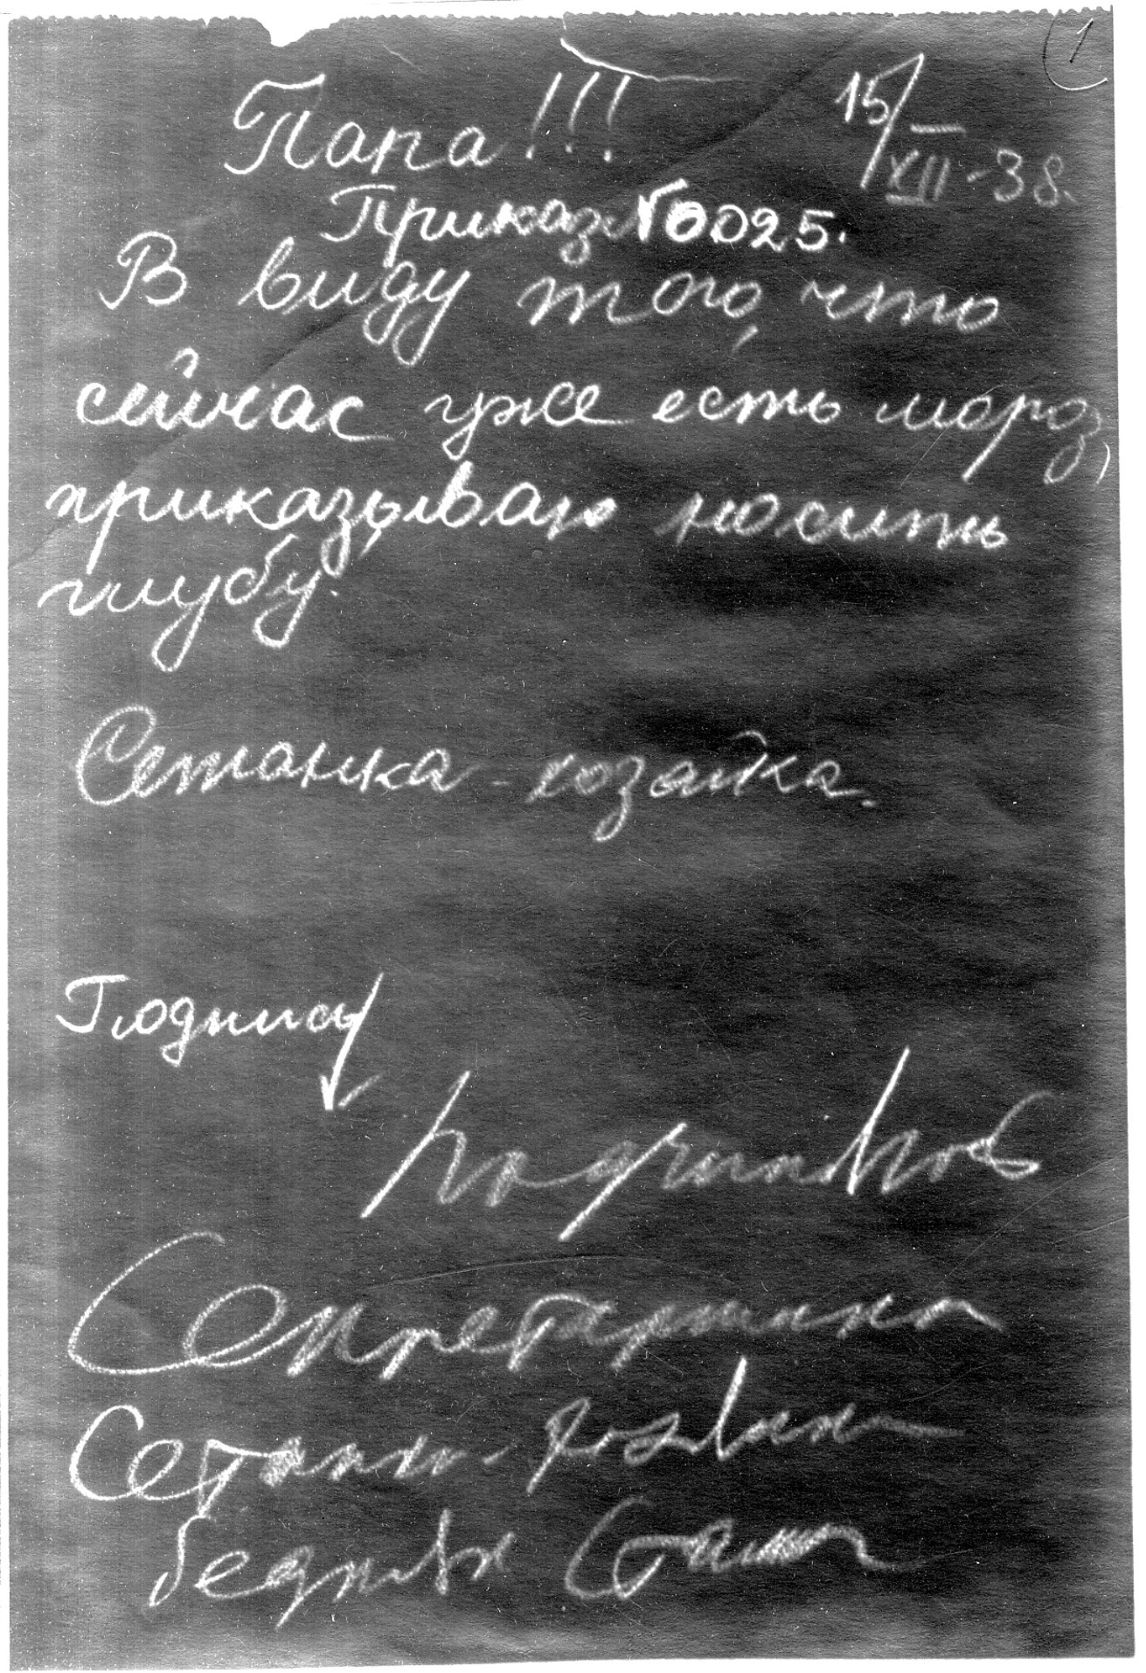 1
Папа!!! 15/XII-38.
Приказ №025.
В виду того, что
сейчас уже есть мороз,
приказываю носить
шубу.
Сетанка-хозяйка.
Подпись
Секретаришка
Сетанки-хозяйки
бедняк Сталин